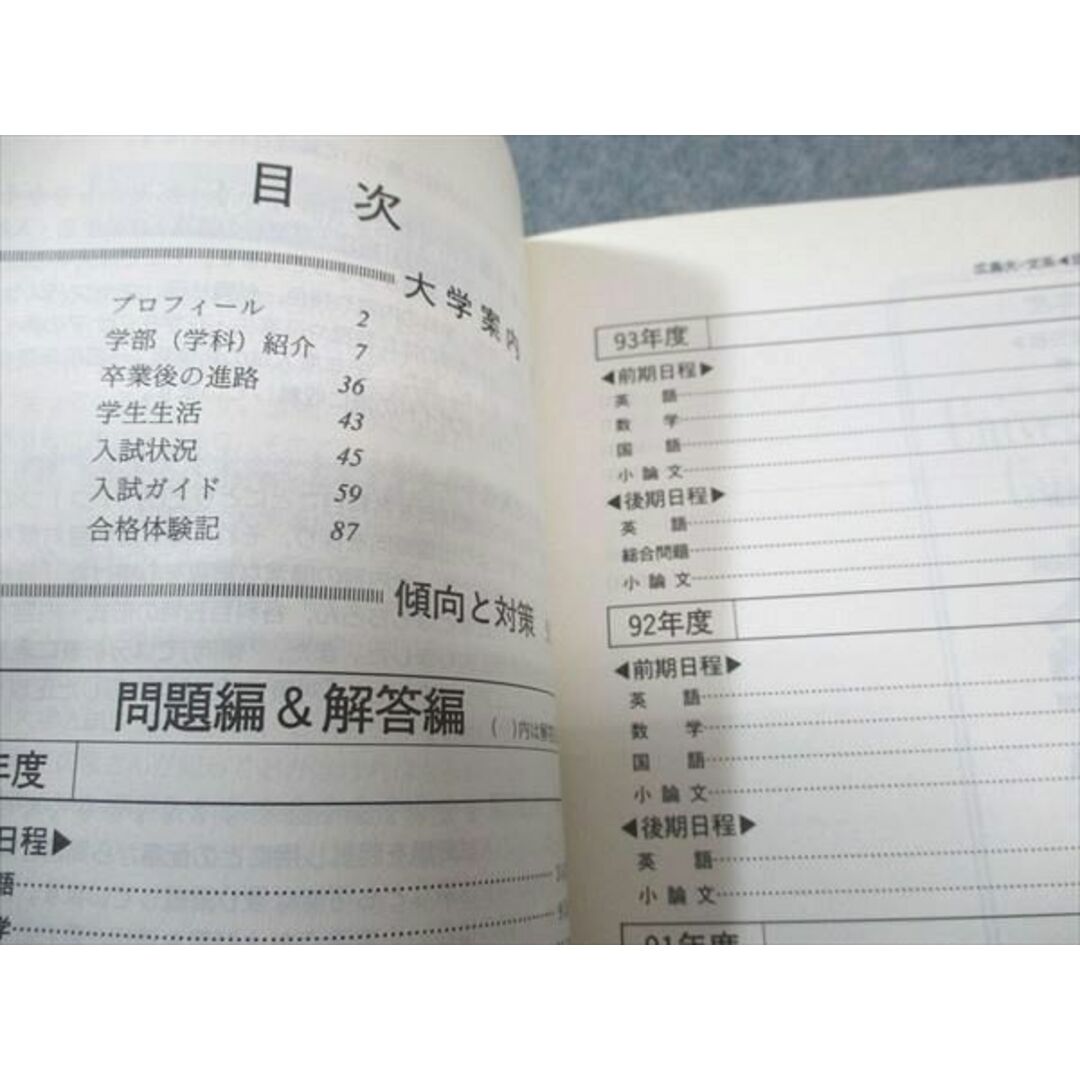 目次
大学案内
プロフィール 2
学部（学科）紹介 7
卒業後の進路 36
学生生活 43
入試状況 45
入試ガイド 59
合格体験記 87
傾向と対策
問題編＆解答編 ( )内は解答
年度
日程▶
語
学
広島大-文系◀
93年度
◀前期日程▶
英語
数学
国語
小論文
◀後期日程▶
英語
総合問題
小論文
92年度
◀前期日程▶
英語
数学
国語
小論文
◀後期日程▶
英語
小論文
91年度